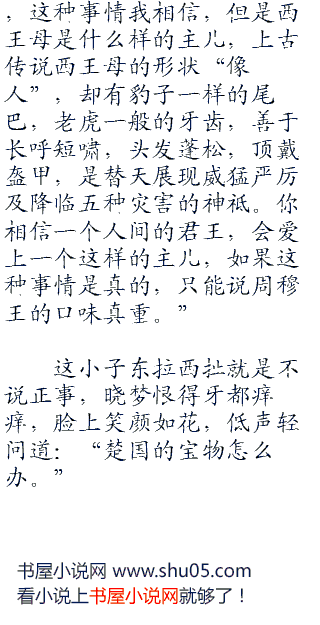 ，这种事情我相信，但是西
王母是什么样的主儿，上古
传说西王母的形状“像
人”，却有豹子一样的尾
巴，老虎一般的牙齿，善于
长呼短啸，头发蓬松，顶戴
盔甲，是替天展现威猛严厉
及降临五种灾害的神祗。你
相信一个人间的君王，会爱
上一个这样的主儿，如果这
种事情是真的，只能说周穆
王的口味真重。”
这小子东拉西扯就是不
说正事，晓梦恨得牙都痒
痒，脸上笑颜如花，低声轻
问道：“楚国的宝物怎么
办。”
书屋小说网 www.shu05.com
看小说上书屋小说网就够了！